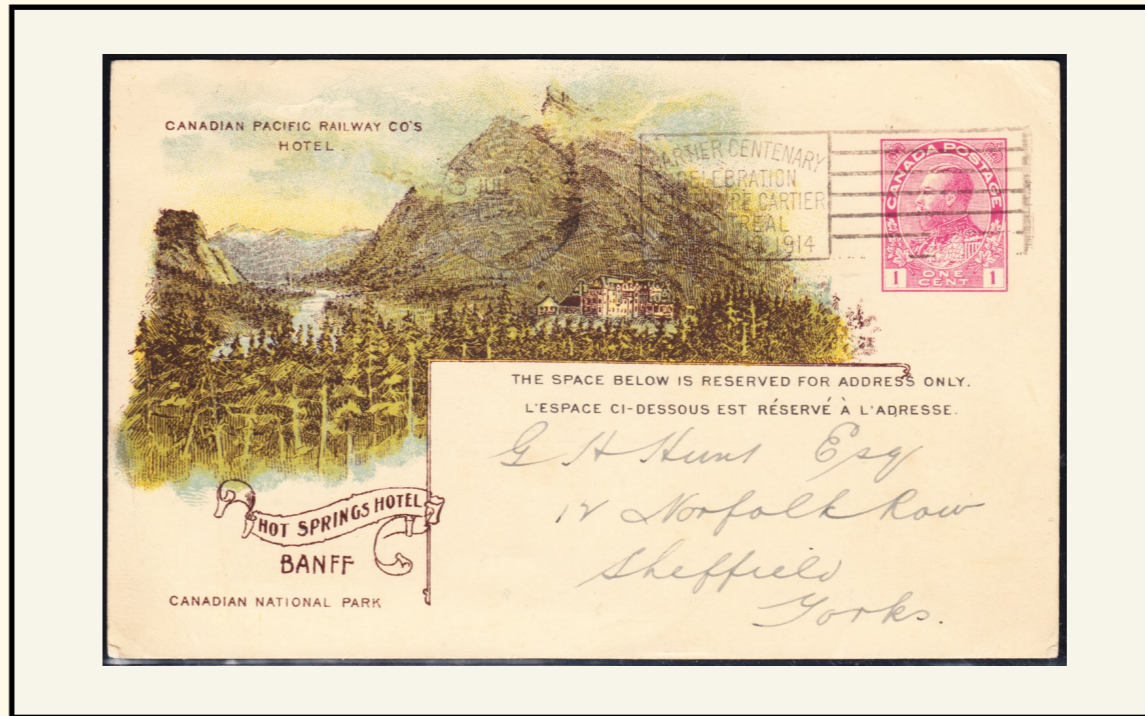 CANADIAN PACIFIC RAILWAY CO'S
HOTEL.
CARTIER CENTENARY
CELEBRATION
CARTIER
REAL
1914
CANADA POSTAGE
1 ONE CENT 1
THE SPACE BELOW IS RESERVED FOR ADDRESS ONLY.
L'ESPACE CI-DESSOUS EST RÉSERVÉ À L'ADRESSE.
G H Hunt Esq
12 Norfolk Row
Sheffield
Yorks.
HOT SPRINGS HOTEL
BANFF
CANADIAN NATIONAL PARK